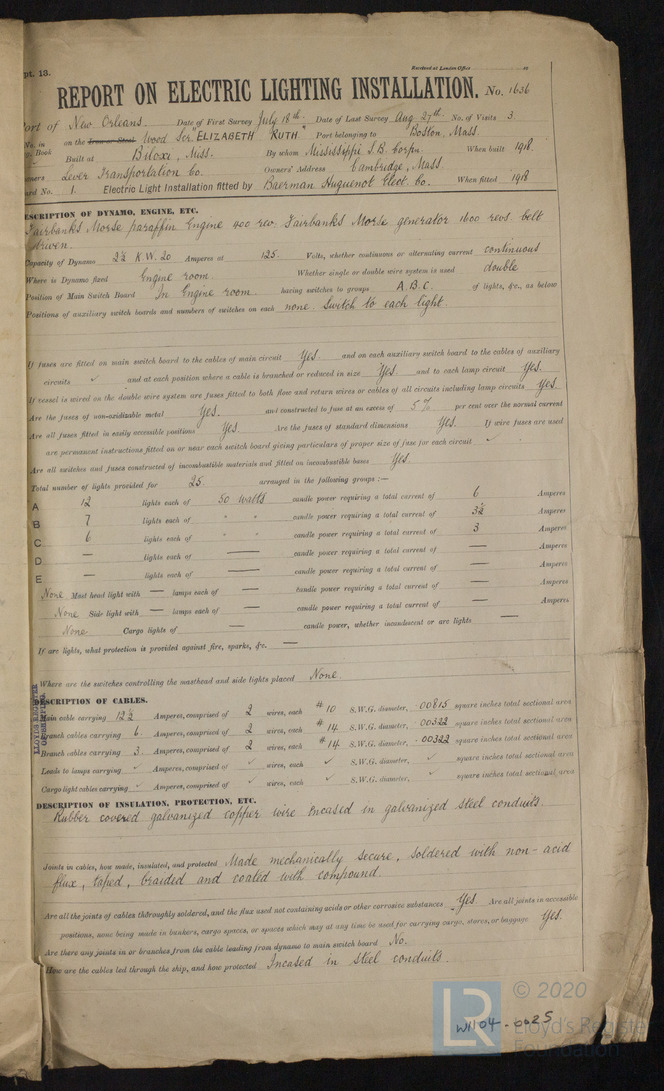 pt. 13.
Received at London Office
REPORT ON ELECTRIC LIGHTING INSTALLATION. No. 1636
ort of New Orleans Date of First Survey July 18th Date of Last Survey Aug 27th No. of Visits 3.
No. in Book on the Iron or Steel Wood Scr "ELIZABETH RUTH" Port belonging to Boston, Mass.
Built at Biloxi, Miss. By whom Mississippi S.B. Corpn When built 1918.
wners Lever Transportation Co. Owners' Address Cambridge, Mass.
ard No. 1. Electric Light Installation fitted by Baerman Huguenot Elect. Co. When fitted 1918
DESCRIPTION OF DYNAMO, ENGINE, ETC.
Fairbanks Morse paraffin Engine 400 rev. Fairbanks Morse generator 1600 revs. belt
driven.
Capacity of Dynamo 2½ K.W. 20 Amperes at 125. Volts, whether continuous or alternating current continuous
Where is Dynamo fixed Engine room. Whether single or double wire system is used double
Position of Main Switch Board In Engine room. having switches to groups A.B.C. of lights, &c., as below
Positions of auxiliary switch boards and numbers of switches on each none. Switch to each light.
If fuses are fitted on main switch board to the cables of main circuit Yes. and on each auxiliary switch board to the cables of auxiliary
circuits ✓ and at each position where a cable is branched or reduced in size Yes. and to each lamp circuit Yes.
If vessel is wired on the double wire system are fuses fitted to both flow and return wires or cables of all circuits including lamp circuits Yes.
Are the fuses of non-oxidizable metal Yes. and constructed to fuse at an excess of 5% per cent over the normal current
Are all fuses fitted in easily accessible positions Yes. Are the fuses of standard dimensions Yes. If wire fuses are used
are permanent instructions fitted on or near each switch board giving particulars of proper size of fuse for each circuit ✓
Are all switches and fuses constructed of incombustible materials and fitted on incombustible bases Yes.
Total number of lights provided for 25. arranged in the following groups :—
A 12 lights each of 50 watts candle power requiring a total current of 6 Amperes
B 7 lights each of " " candle power requiring a total current of 3½ Amperes
C 6 lights each of " " candle power requiring a total current of 3 Amperes
D — lights each of — candle power requiring a total current of — Amperes
E — lights each of — candle power requiring a total current of — Amperes
None. Mast head light with — lamps each of — candle power requiring a total current of — Amperes
None Side light with — lamps each of — candle power requiring a total current of — Amperes
None Cargo lights of — candle power, whether incandescent or arc lights —
If arc lights, what protection is provided against fire, sparks, &c. —
Where are the switches controlling the masthead and side lights placed None.
LLOYD'S REGISTER OF SHIPPING
DESCRIPTION OF CABLES.
Main cable carrying 12½ Amperes, comprised of 2 wires, each #10 S.W.G. diameter, .00815 square inches total sectional area
Branch cables carrying 6. Amperes, comprised of 2 wires, each #14 S.W.G. diameter, .00322 square inches total sectional area
Branch cables carrying 3. Amperes, comprised of 2 wires, each #14 S.W.G. diameter, .00322 square inches total sectional area
Leads to lamps carrying ✓ Amperes, comprised of ✓ wires, each ✓ S.W.G. diameter, ✓ square inches total sectional area
Cargo light cables carrying ✓ Amperes, comprised of ✓ wires, each ✓ S.W.G. diameter, ✓ square inches total sectional area
DESCRIPTION OF INSULATION, PROTECTION, ETC.
Rubber covered galvanized copper wire Encased in galvanized steel conduits.
Joints in cables, how made, insulated, and protected Made mechanically secure, soldered with non-acid
flux, taped, braided and coated with compound.
Are all the joints of cables thoroughly soldered, and the flux used not containing acids or other corrosive substances Yes. Are all joints in accessible
positions, none being made in bunkers, cargo spaces, or spaces which may at any time be used for carrying cargo, stores, or baggage Yes.
Are there any joints in or branches from the cable leading from dynamo to main switch board No.
How are the cables led through the ship, and how protected Incased in steel conduits.
LR
© 2020
Lloyd's Register
Foundation
W1104-0025